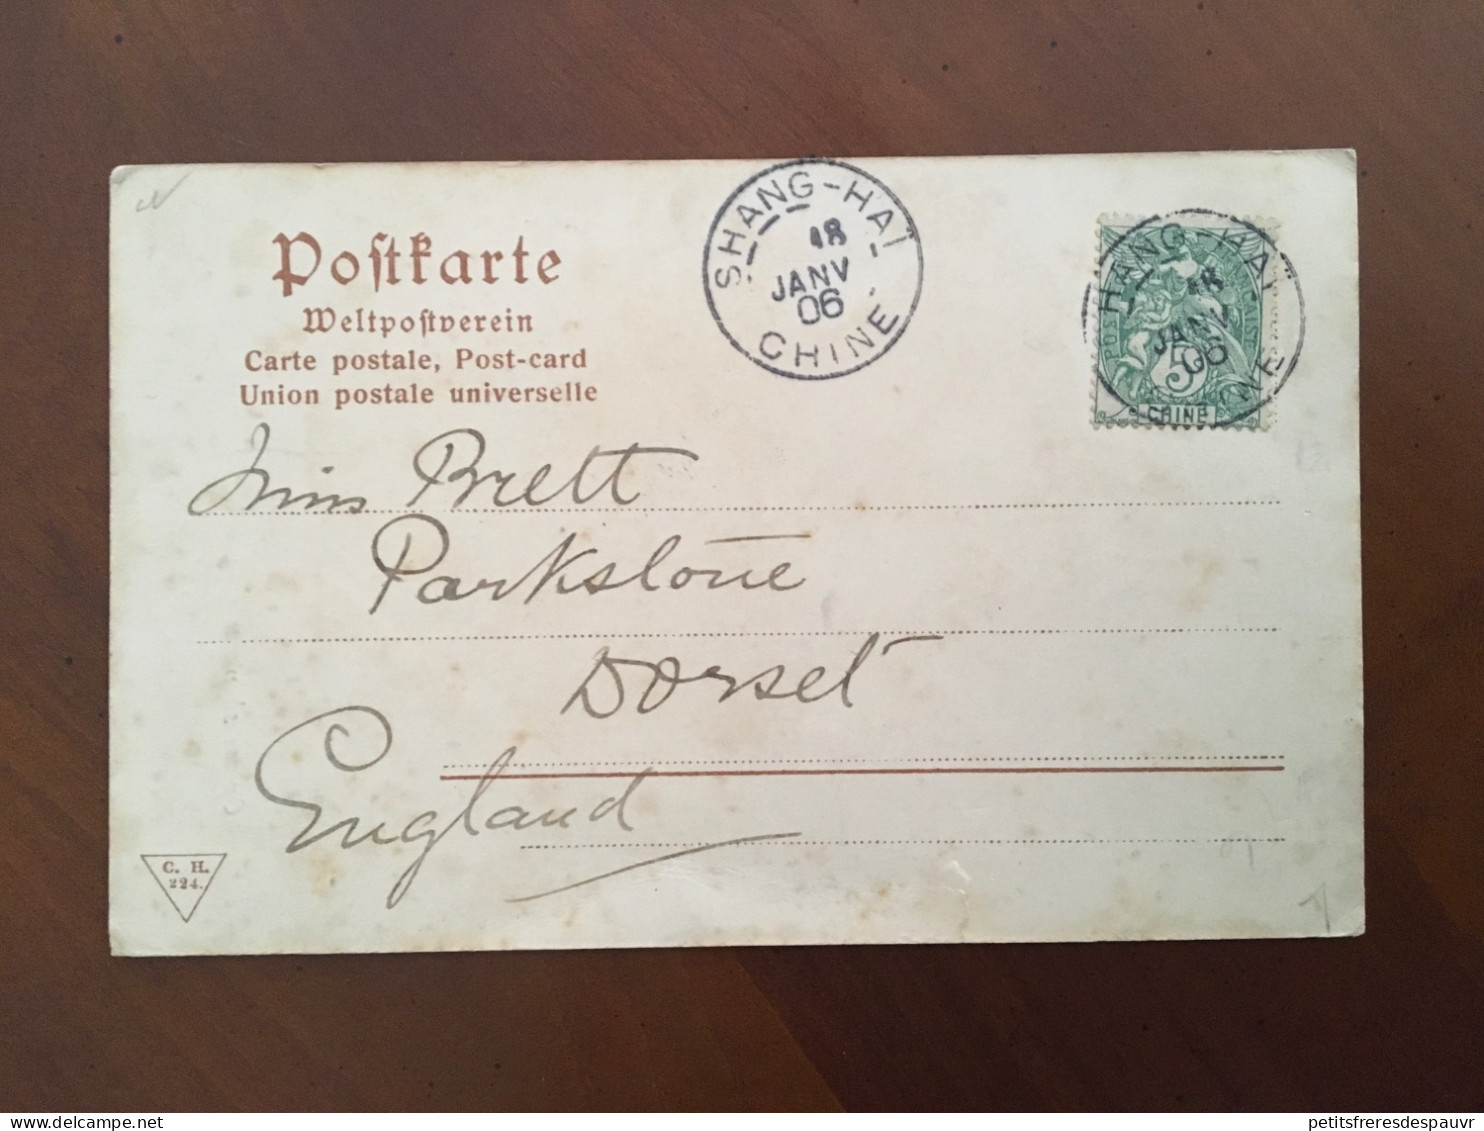 Postkarte
Weltpostverein
Carte postale, Post-card
Union postale universelle
SHANG-HAÏ
18
JANV
06
CHINE
HANG HAÏ
18
JANV
06
INE
POSTE
5
CHINE
Miss Brett
Parkstone
Dorset
England
C. H.
224.
petitsfreresdespauvr